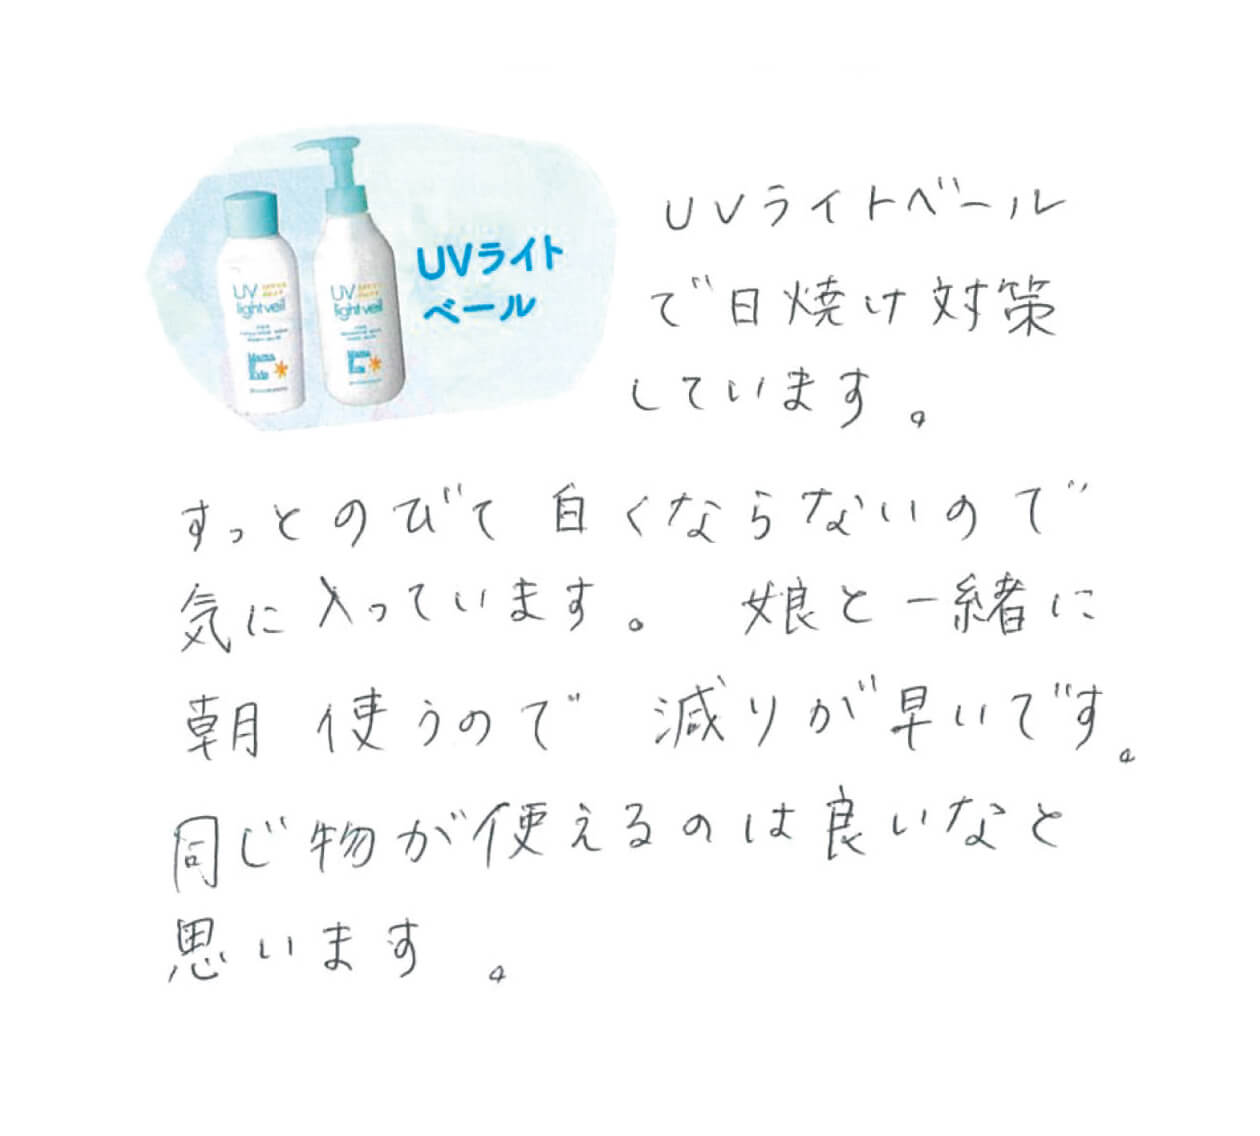 UVライト
ベール
UV
lightveil
UV
lightveil
Mama
Kids
UVライトベール
で日焼け対策
しています。
すっとのびて白くならないので
気に入っています。 娘と一緒に
朝 使うので 減りが早いです。
同じ物が使えるのは良いなと
思います。